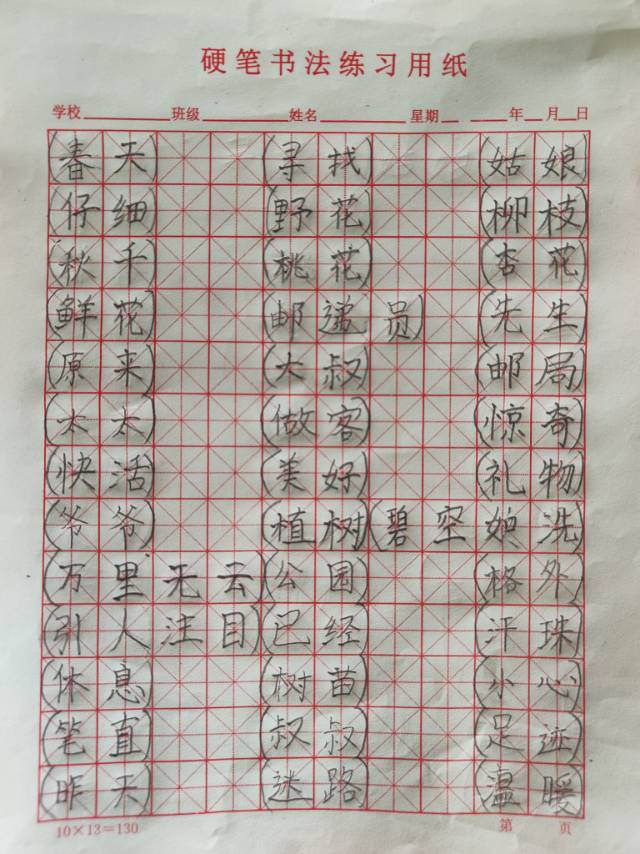 硬笔书法练习用纸
学校 班级 姓名 星期 年 月 日
(春天) (寻找) (姑娘)
(仔细) (野花) (柳枝)
(秋千) (桃花) (杏花)
(鲜花) (邮递员) (先生)
(原来) (大叔) (邮局)
(太太) (做客) (惊奇)
(快活) (美好) (礼物)
(爷爷) (植树) (碧空如洗)
(万里无云) (公园) (格外)
(引人注目) (已经) (汗珠)
(休息) (树苗) (小心)
(笔直) (叔叔) (足迹)
(昨天) (迷路) (温暖)
10×13=130 第 页